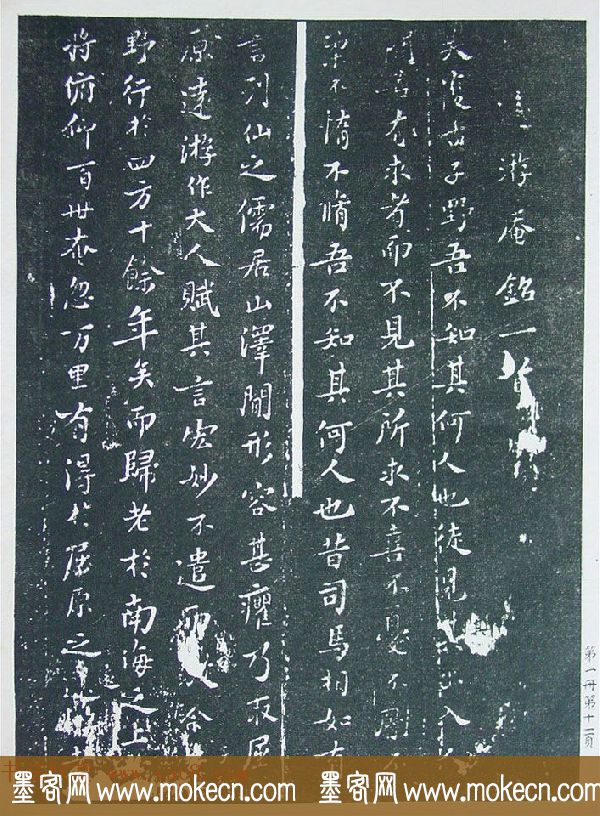 遠游庵銘一首
吳復古子野吾不知其何人也徒見其出入
間若有求者而不見其所求不喜不憂不剛不
柔不惰不脩吾不知其何人也昔司馬相如有
言列仙之儒居山澤間形容甚癯乃取屈
原遠游作大人賦其言宏妙不遣而今
野行於四方十餘年矣而歸老於南海之上
將俯仰百世奄忽万里有得於屈原之
第一冊第十二頁
墨客网 www.mokecn.com 墨客网 www.mokecn.com